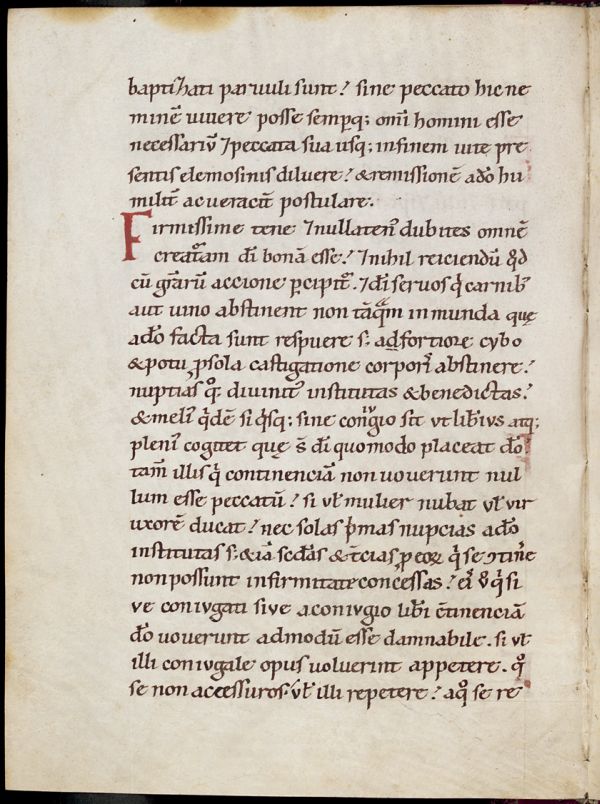 baptizati paruuli sunt? sine peccato hic ne
minē uiuere posse semp̱q; omī homini esse
necessariū ⁊peccata sua usq; infinem uite pre
sentis elemosinis diluere? &remissionē adō hu
milit̄ acueracit̄ postulare.
Firmissime tene ⁊nullaten᷒ dubites omnē
creat͛am dī bonā esse? ⁊nihil reiciendū qd̄
cū gr̄arū accione ꝑcipit͛. ⁊dī seruos q̇ carnib᷒
aut uino abstinent non tāqͣm inmunda quę
adō facta sunt respuere s; adfortiorē cybo
&potu ꝓsola castigatione corporī abstinere?
nuptias qͦ; diuinit᷒ institutas &benedictas?
&meli᷒ q̇dē si q̇sq; sine coniugio sit ut liberius atq;
pleni᷒ cogitet quę s̄ dī quomodo placeat dō?
tam̄ illis q̇ continenciā non uouerunt nul
lum esse peccatū? si ul̄ mulier nubat ul̄ uir
uxorē ducat? nec solas p̄mas nupcias adō
institutas s; &iā scd̄as &t̄cias ꝓ eoꝝ q̇ se ɔtinē
nonpossunt infirmitate concessas? ei᷒ ū q̇ si
ue coniugati siue aconiugio lib̄i c̄tinenciā
dō uouerunt admodū esse damnabile. si ul̄
illi coniugale opus uoluerint appetere. qͦ
se non accessuros; ul̄ illi repetere? aqͦ se re